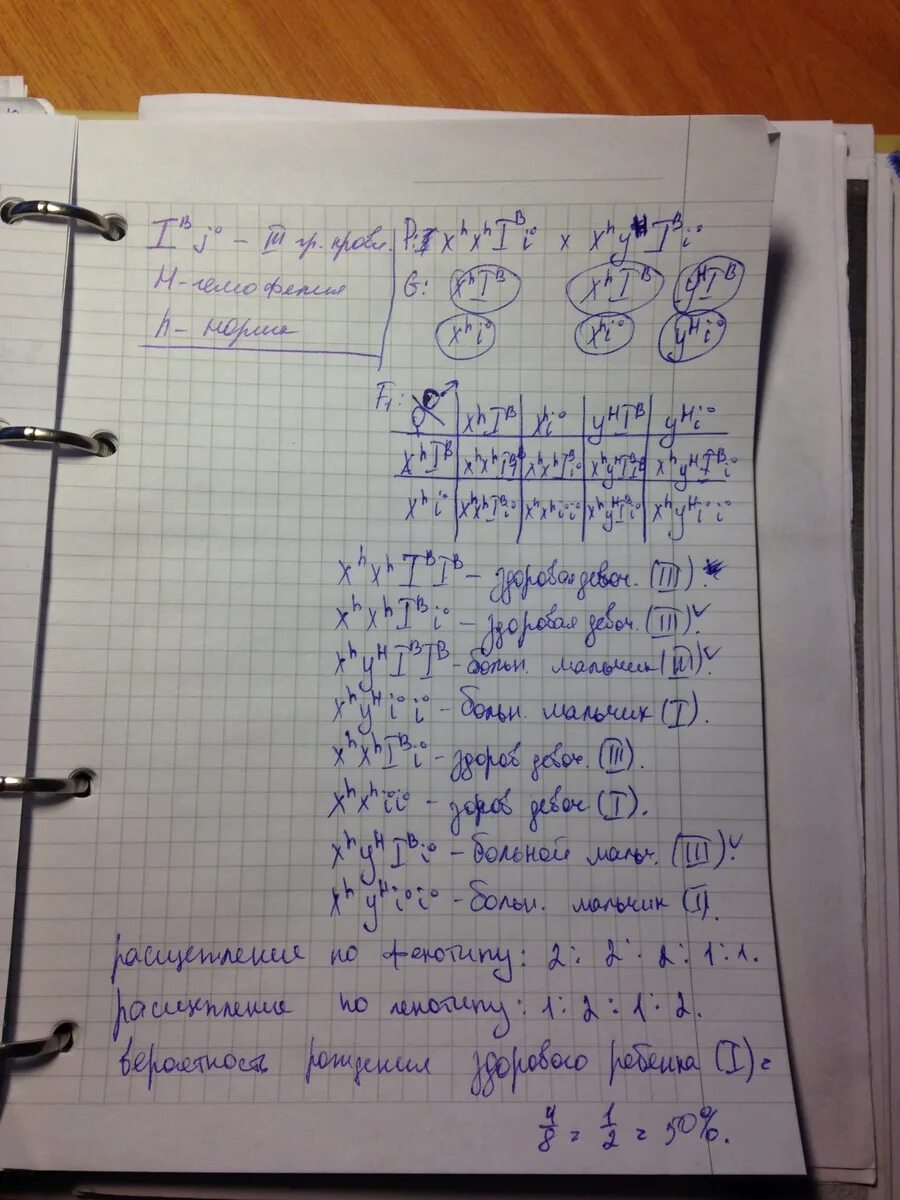 I^B j° – III гр. крови
H – гемофелия
h – норма
P: x^h x^h I^B i° x x^h y^H I^B i°
G: x^h I^B x^h I^B y^H I^B
x^h i° x^h i° y^H i°
F₁: ♀ ♂ x^h I^B x^h i° y^H I^B y^H i°
x^h I^B x^h x^h I^B I^B x^h x^h I^B i° x^h y^H I^B I^B x^h y^H I^B i°
x^h i° x^h x^h I^B i° x^h x^h i° i° x^h y^H I^B i° x^h y^H i° i°
x^h x^h I^B I^B – здоровая девоч. (III)
x^h x^h I^B i° – здоровая девоч. (III) ✓
x^h y^H I^B I^B – больн. мальчик (III) ✓
x^h y^H i° i° – больн. мальчик (I).
x^h x^h I^B i° – здоров девоч. (III).
x^h x^h i° i° – зоров девоч (I).
x^h y^H I^B i° – больной мальч. (III) ✓
x^h y^H i° i° – больн. мальчик (I).
расщепление по фенотипу: 2 : 2 : 2 : 1 : 1.
расщепление по генотипу: 1 : 2 : 1 : 2.
вероятность рождения здорового ребенка (I) =
4/8 = 1/2 = 50%.